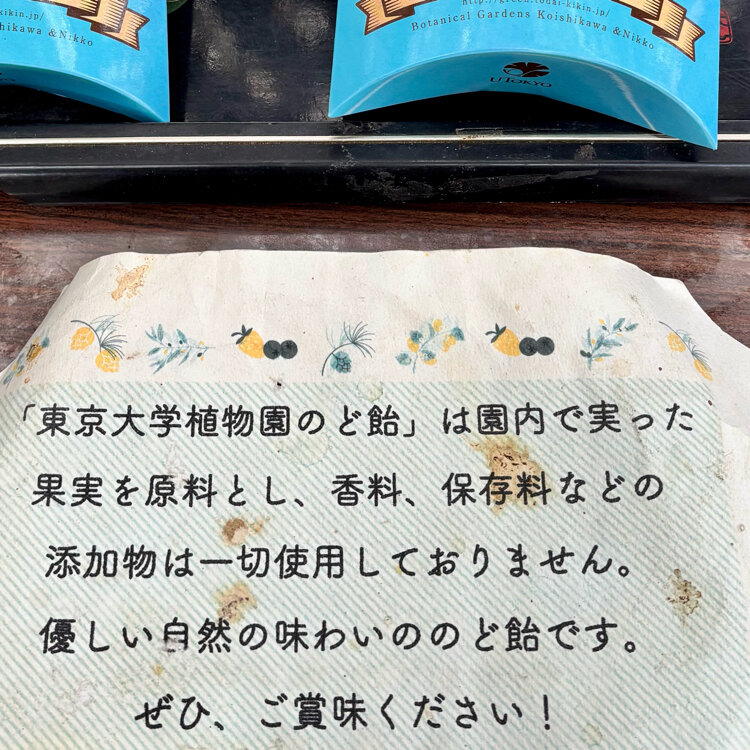 kikin.jp/
Koishikawa & Nikko
http://green.todai-kikin.jp/
Botanical Gardens Koishikawa & Nikko
UTOKYO
「東京大学植物園のど飴」は園内で実った
果実を原料とし、香料、保存料などの
添加物は一切使用しておりません。
優しい自然の味わいののど飴です。
ぜひ、ご賞味ください！